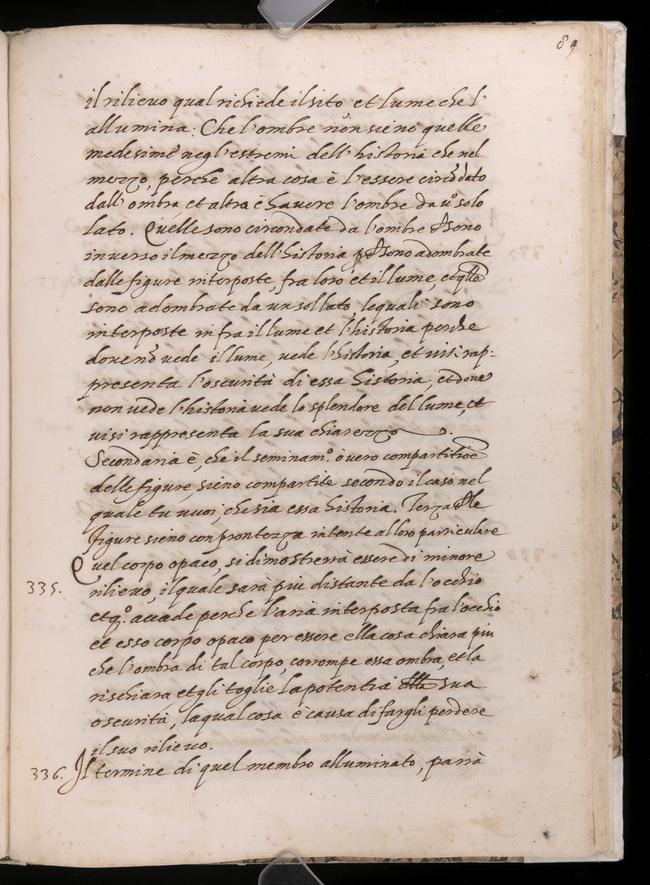 89
il rilievo qual richiede il sito et lume che l'
allumina: Che l'ombre non sieno quelle
medesime negl'estremi dell'historia che nel
mezzo, perche altra cosa è l'essere circōdato
dall'ombra, et altra è havere l'ombre da uº solo
lato. Quelle sono circondate da l'ombre sono
inverso il mezzo dell'historia sono adombrate
dalle figure interposte, fra loro et il lume, et qlle
sono adombrate da un sol lato, lequali sono
interposte infra il lume et l'historia perche
dove nō vede il lume, vede l'historia, et visi rap:
presenta l'oscurità di essa historia, et dove
non vede l'historia vede lo splendore del lume, et
visi rappresenta la sua chiarezza.
Secondaria è, che il seminamº. ò vero compartitiōe
delle figure, sieno compartite secondo il caso nel
quale tu vuoi, che sia essa historia. Terza le
figure sieno con prontezza intente al loro particulare
Quel corpo opaco, si dimostrerrà essere di minore
335. rilievo, il quale sarà più distante da l'occhio
et qº. accade perche l'aria interposta fra l'occhio
et esso corpo opaco per essere ella cosa chiara piu
che l'ombra di tal corpo, corrompe essa ombra, et la
rischiara et gli toglie la potentia della sua
oscurità, la qual cosa è causa di fargli perdere
il suo rilievo.
336. Il termine di quel membro alluminato, parrà